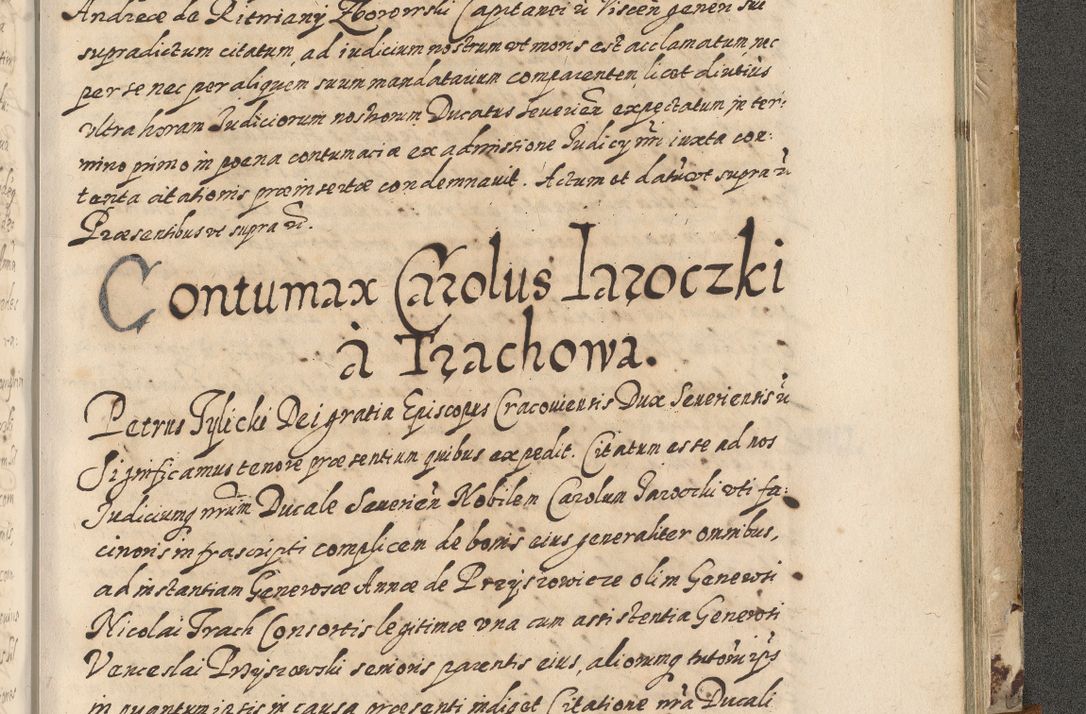 Andreæ de Ritwiany Zborowski Capitanei ac Viscen genen sui
supradictum citatum, ad iudicium nostrum ut moris est acclamatum nec
per se nec per aliquem suum mandatarium comparenten licet diutius
ultra horam Judiciorum nostrorum Ducatus Severien expectatum in ter:
mino primo in poena contumaciæ ex admissione Judicij nri iuxta con:
tenta citationis præinsertæ condemnavit. Actum et datu ut supra
Præsentibus ut supra
Contumax Carolus Iaroczki
à Trachowa.
Petrus Tylicki Dei gratia Episcopus Cracoviensis Dux Severiensis
Significamus tenore præsentiun quibus expedit. Citatum esse ad nos
Judiciumq nrum Ducale Severien Nobilem Carolun Jaroocki uti fa:
cinoris infrascripti complicem de bonis eius generaliter omnibus,
ad instantiam Generosæ Annæ de Przyszowicze olim Generosi
Nicolai Trach Consortis legitimæ una cum assistentia Generosi
Venceslai Przyszowski senioris parentis eius, aliorumq tutoru ips
in quantum iatis in causa præsenti indiget Citatione nra Ducali